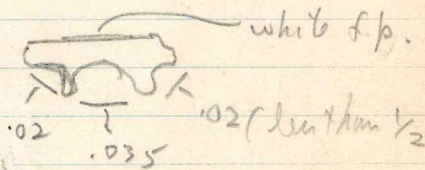 white f.p.
.02
.035
.02 (less than 1/2